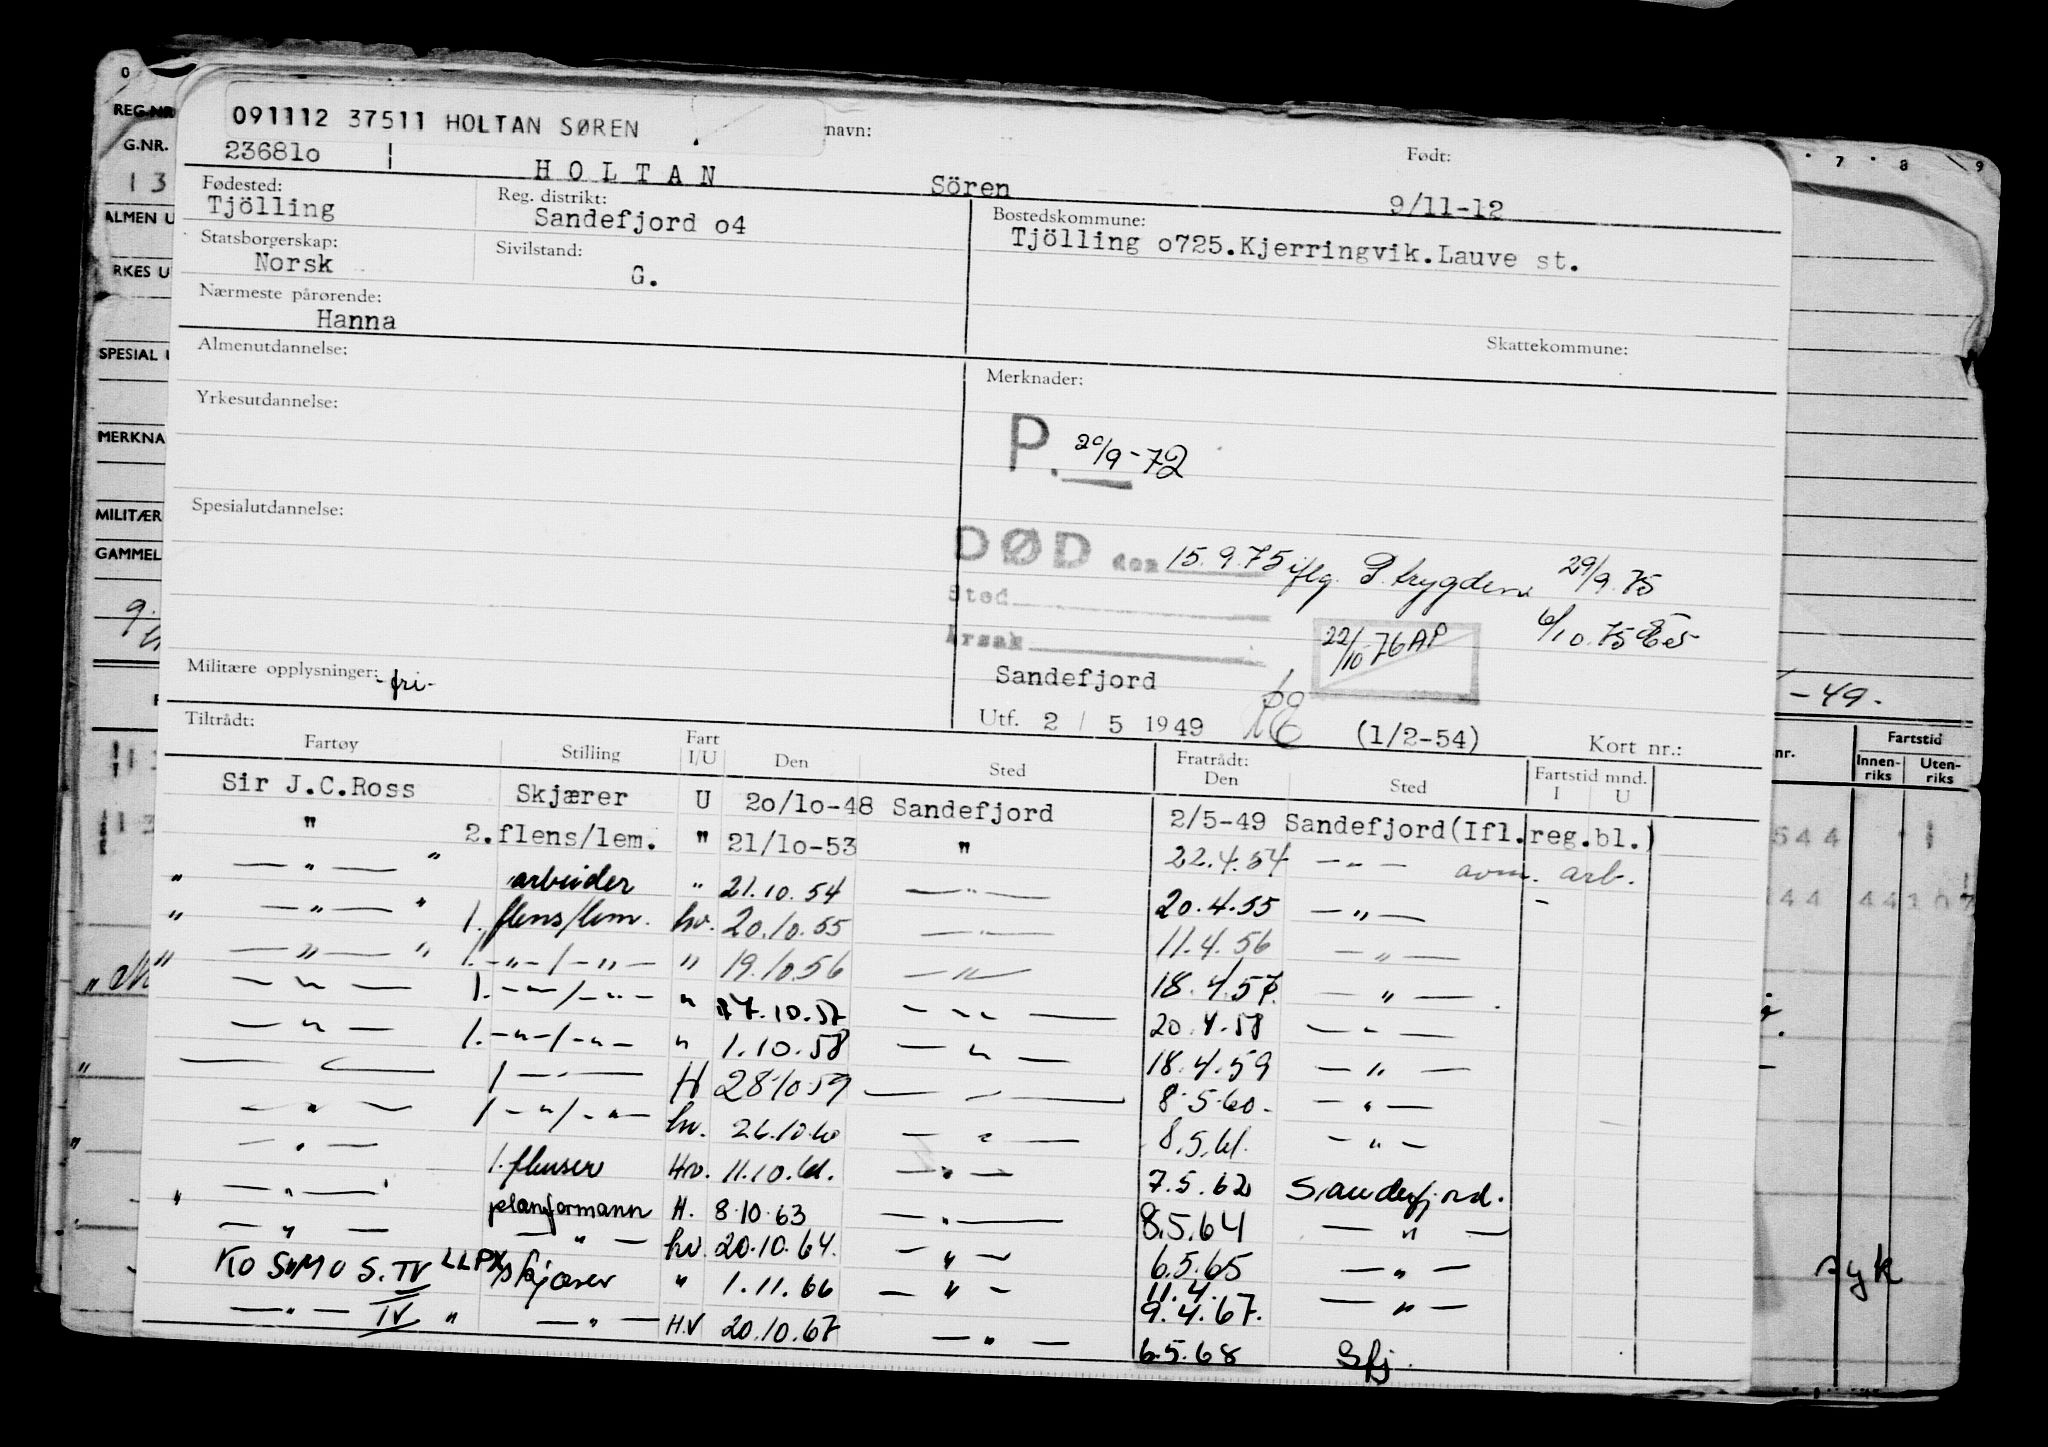 091112 37511 HOLTAN SØREN
navn:
Født:
23681o
HOLTAN
Sören
9/11-12
Fødested:
Tjölling
Reg. distrikt:
Sandefjord o4
Bostedskommune:
Tjölling o725.Kjerringvik.Lauve st.
Statsborgerskap:
Norsk
Sivilstand:
G.
Nærmeste pårørende:
Hanna
Skattekommune:
Almenutdannelse:
Merknader:
Yrkesutdannelse:
P. 20/9-72
Spesialutdannelse:
DØD den 15.9.75 iflg. P. trygden 29/9.75
Sted
6/10.75
Årsak
22/10 76 AP
Militære opplysninger: -fri-
Sandefjord
Utf. 2 / 5 1949
(1/2-54)
Kort nr.:
Tiltrådt:
Fartøy Stilling Fart I/U Den Sted Fratrådt: Den Sted Fartstid mnd. I U
Sir J.C.Ross Skjærer U 2o/1o-48 Sandefjord 2/5-49 Sandefjord(Ifl.reg.bl.)
" 2.flens/lem. " 21/1o-53 " 22.4.54 — " — avm. arb.
" — " — " arbeider " 21.10.54 — " — 20.4.55 — " — -
" — " — " 1. flens/lem. hv. 20.10.55 — " — 11.4.56 — " —
" — " — " 1. — " — / — " — " 19.10.56 — " — 18.4.57. — " —
— " — 1. — " — / — " — " 17.10.57 — " — 20.4.58 — " —
— " — 1. — " — / — " — " 1.10.58 — " — 18.4.59 — " —
— " — 1 — " — H 28.10.59 — " — 8.5.60. — " —
— " — 1 — " — / — " — hv. 26.10.60 — " — 8.5.61. — " —
— " — 1. flenser Hv. 11.10.61. — " — 7.5.62 Sandefjord.
" — " — planformann H. 8.10.63 — " — 8.5.64 — " —
— " — — " — hv. 20.10.64. — " — 6.5.65 — " —
KOSMOS. IV LLPX skjærer " 1.11.66 — " — 11.4. 9.4.67. — " —
— " — IV " — " — H.V 20.10.67 — " — 6.5.68 Sfj.
0
REG.NR
G.NR.
13
ALMEN U
RKES U
SPESIAL U
MERKNA
MILITÆR
GAMMEL
9.
7 8 9
-49.
nr.
Fartstid
Innen-riks
Uten-riks
544 1
44 44 107
syk